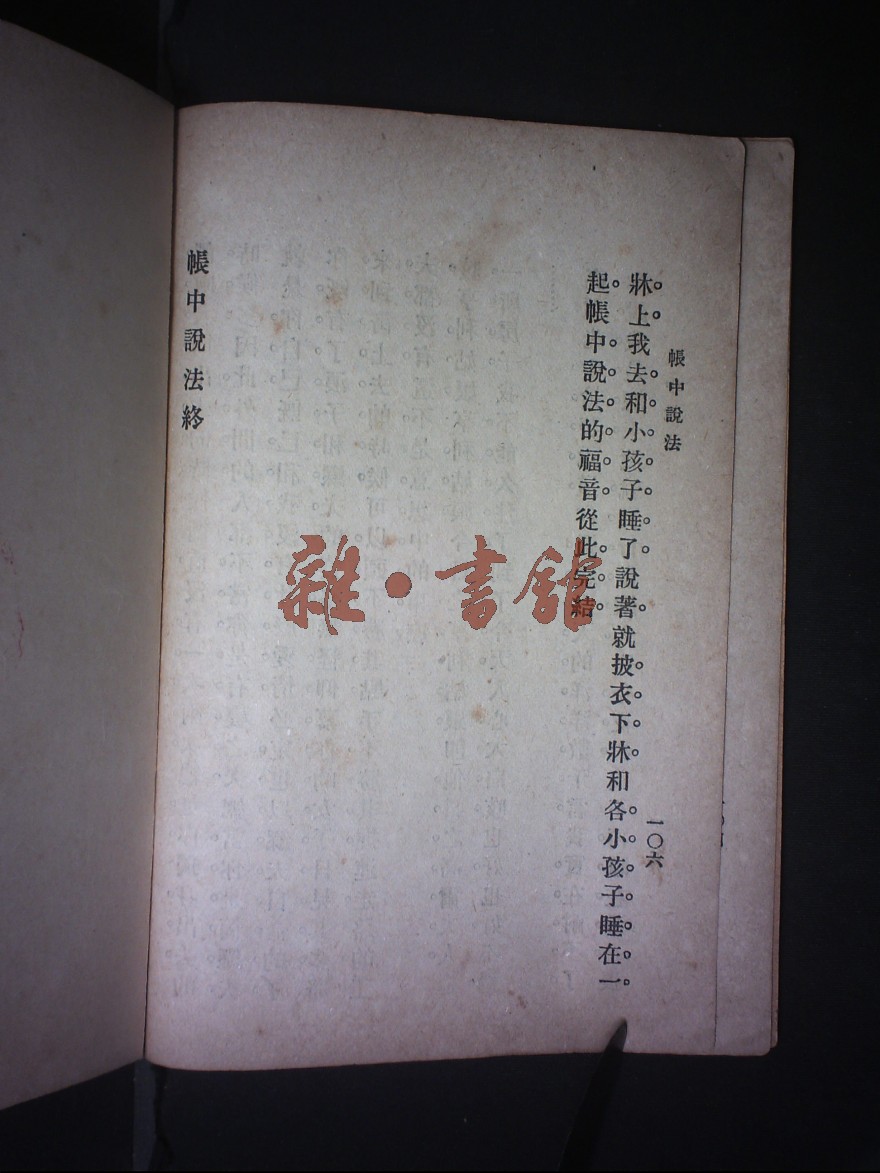 帳中說法
一〇六
牀上我去和小孩子睡了說著就披衣下牀和各小孩子睡在一
起帳中說法的福音從此完結
帳中說法終
雜·書館